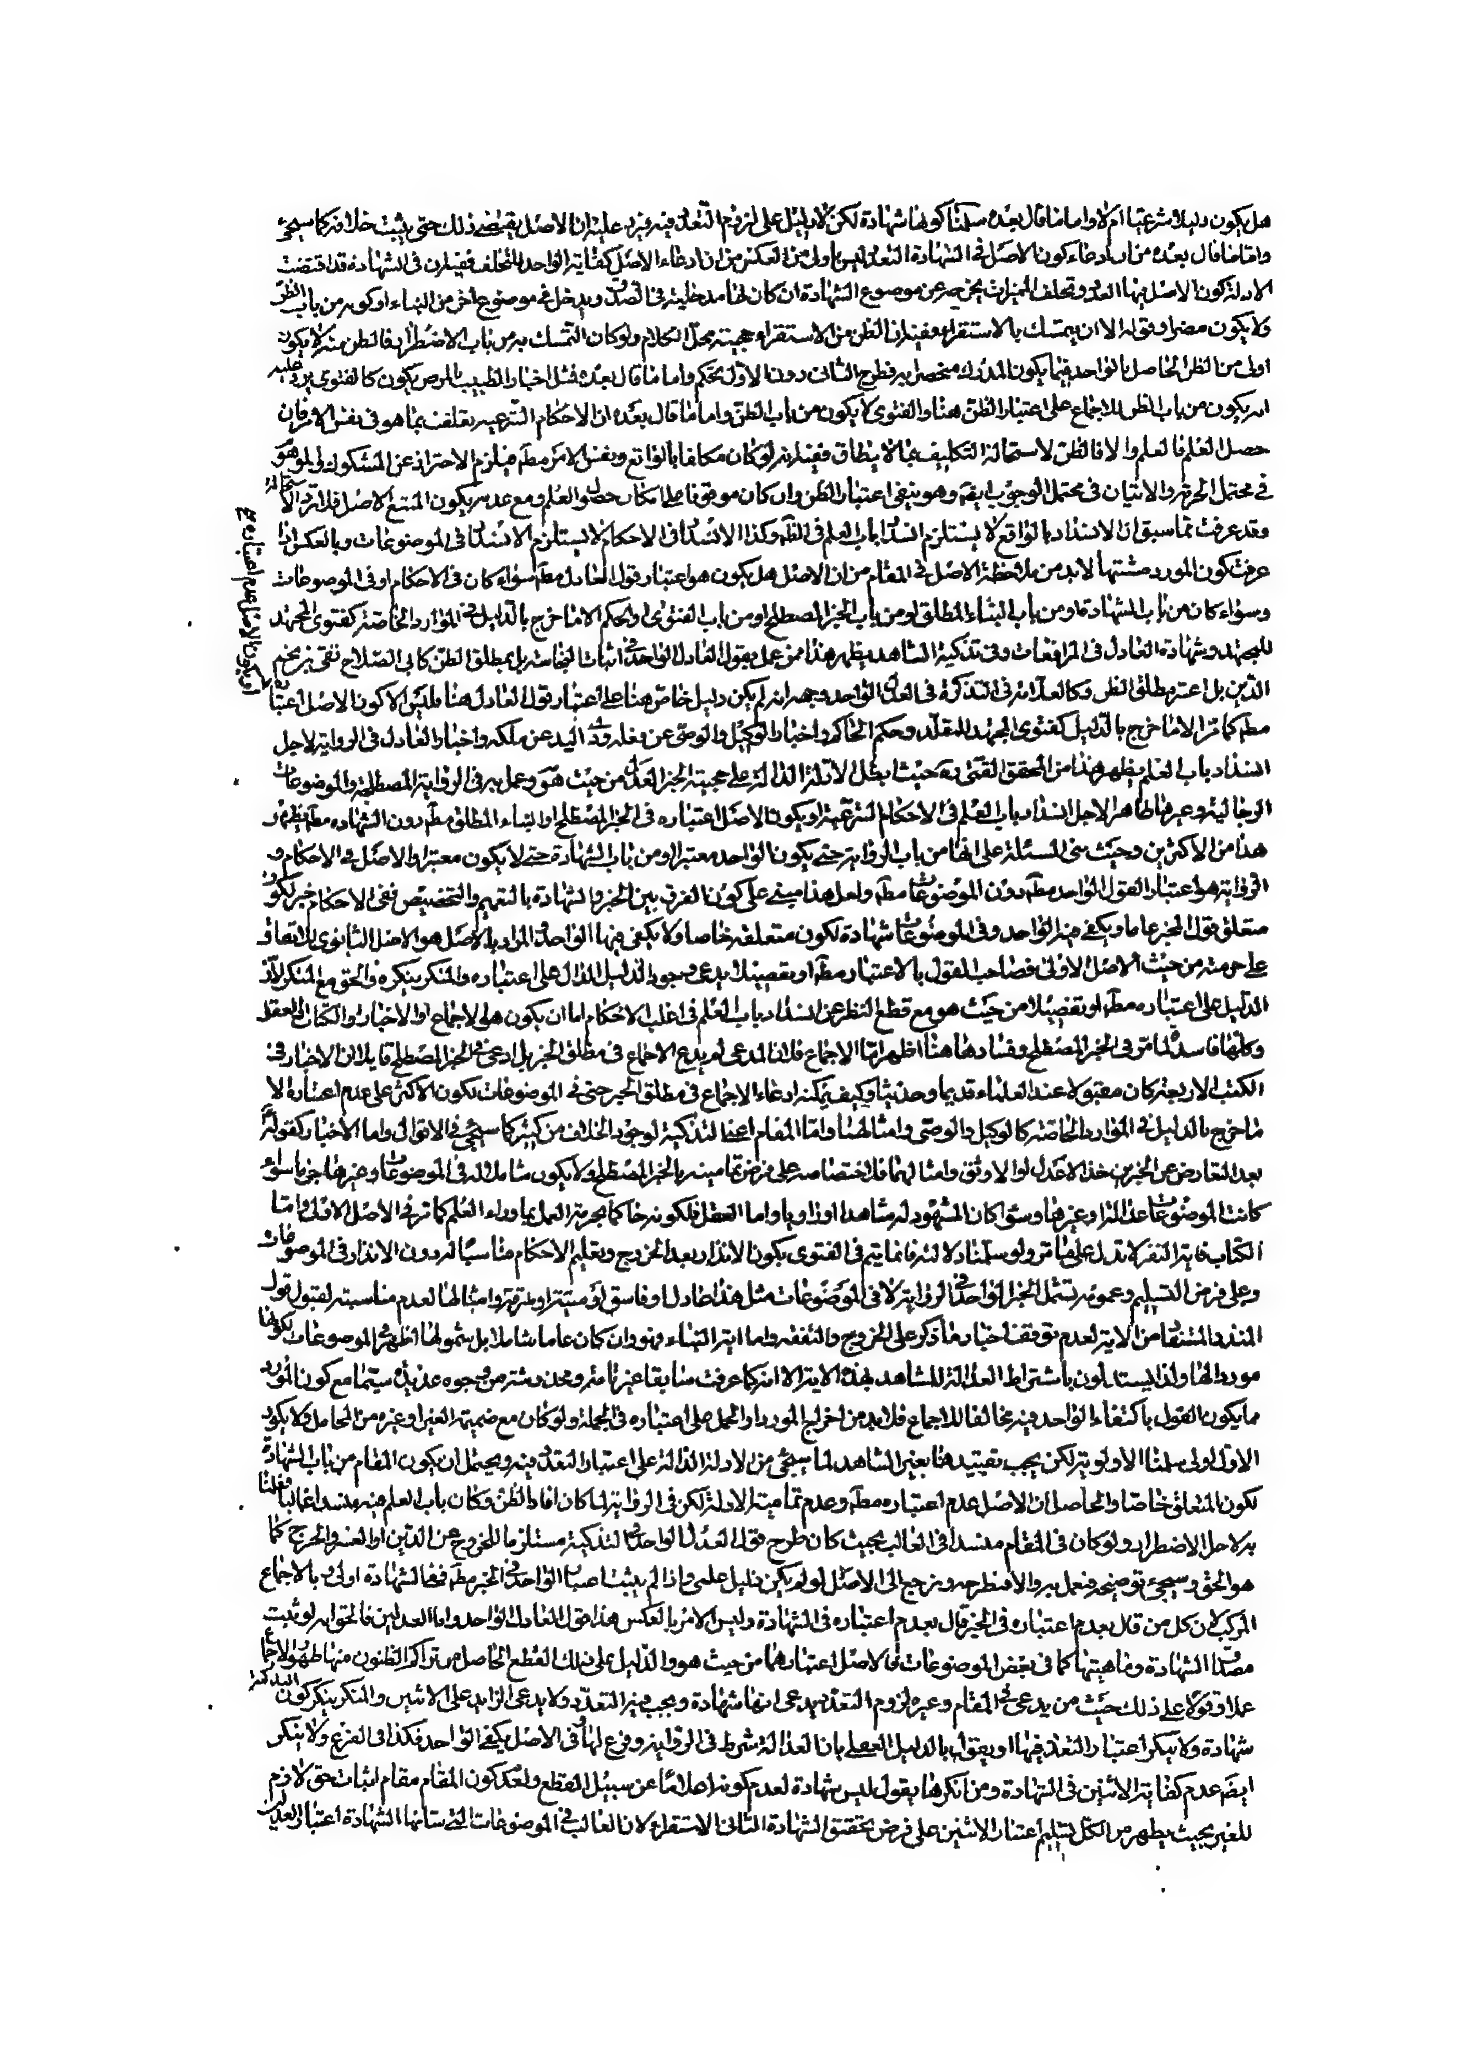 هل يكون دليلا شرعيا ام لا واما ما قال بعده سلمنا كونها شهادة لكن لا دليل على لزوم التعدد فيه فيرد عليه ان الاصل يقتضى ذلك حتى يثبت خلافه كما سيجئ
واما ما قال بعده من ان ادعاء كون الاصل في الشهادة التعدد ليس باولى من العكس من ان ادعاء الاصل كفاية الواحد المختلف ففيه ان في الشهادة قد اقتضت
الادلة كون الاصل فيها العدد وتخلف الميراث يخرجه عن موضوع الشهادة ان كان لها مدخلية في الصدق ويدخل في موضوع اخر من النباء او كونه من باب الظن
ولا يكون مضرا وقوله الا ان يتمسك بالاستقراء ففيه ان الظن من الاستقراء حجيته محل الكلام ولو كان التمسك به من باب الاضطرار فالظن منه لا يكون
اولى من الظن الحاصل بالواحد فيما يكون المدرك منحصرا به فطرح الثانى دون الاول تحكم واما ما قال بعده مثل اخبار الطبيب بالمرض يكون كالفتوى يرد عليه
انه يكون من باب الظن للاجماع على اعتبار الظن هنا والفتوى لا يكون من باب الظن واما ما قال بعده ان الاحكام الشرعية تعلقت بما هو في نفس الامر فان
حصل العلم فالعلم والا فالظن لاستحالة التكليف بما لا يطاق ففيه انه لو كان مكلفا بالواقع ونفس الامر مطه فيلزم الاحتراز عن المشكوك ولو هو
في محتمل الحرمة والاتيان في محتمل الوجوب ايضه وهو ينفى اعتبار الظن وان كان موقوفا على امكان حصول العلم ومع عدمه يكون المتبع الاصل فلا تراد الاستحالة
وقد عرفت مما سبق ان الانسداد بالواقع لا يستلزم انسداد باب العلم في الظه وكذا الانسداد في الاحكام لا يستلزم الانسداد في الموضوعات وبالعكس اذا
عرفت كون المورد مشتبها لابد من ملاحظة الاصل في المقام من ان الاصل هل يكون هو اعتبار قول العادل مطه سواء كان في الاحكام او في الموضوعات
وسواء كان من باب الشهادة او من باب النباء المطلق او من باب الخبر المصطلح او من باب الفتوى او الحكم الا ما خرج بالدليل في الموارد الخاصة كفتوى المجتهد
للمجتهد وشهادة العادل في المرافعات وفي تذكية الشاهد يظهر هذا ممن عمل بقول العادل الواحد في اثبات النجاسة بل بمطلق الظن كابى الصلاح تقى بن نجم
الدين بل اعتبر مطلق الظن وكالعلامة في التذكرة في العدل الواحد وجهه انه لم يكن دليل خاص هنا على اعتبار قول العادل هنا فليس الا كون الاصل اعتباره
مطه كما مر الا ما خرج بالدليل كفتوى المجتهد للمقلد وحكم الحاكم واخبار الوكيل والوصى عن فعله وذى اليد عن ملكه واخبار العادل في الرواية لاجل
انسداد باب العلم يظهر هذا من المحقق القمى ره حيث ابطل الادلة الدالة على حجية الخبر العدل من حيث هو وعمل به في الرواية المصطلحة والموضوعات
الرجالية وغيرها ظاهرا لاجل انسداد باب العلم في الاحكام الشرعية او يكون الاصل اعتباره في الخبر المصطلح او النباء المطلق مطه دون الشهادة مطه يظهر
هذا من الاكثرين وحيث بنى المسئلة على انها من باب الرواية حتى يكون الواحد معتبرا او من باب الشهادة حتى لا يكون معتبرا والاصل في الاحكام و
الرواية هو اعتبار القول الواحد مطه دون الموضوعات مطه ولعل هذا مبنى على كون الفرق بين الخبر والشهادة بالتعميم والتخصيص ففى الاحكام خبر لكون
متعلق قول المخبر عاما ويكفى فيه الواحد وفي الموضوعات شهادة لكون متعلقه خاصا ولا يكفى فيها الواحد والمراد بالاصل هو الاصل الثانوى بالاتفاق
على حرمته من حيث الاصل الاولى فصاحب القول بالاعتبار مطه او تفصيلا يدعى وجود الدليل الدال على اعتباره والمنكر ينكره والحق مع المنكر لان
الدليل على اعتباره مطه او تفصيلا من حيث هو مع قطع النظر عن انسداد باب العلم في اغلب الاحكام اما ان يكون هو الاجماع او الاخبار والكتاب والعقل
وكلها فاسد لما مر في الخبر المصطلح وفسادها هنا اظهر اما الاجماع فلان المدعى لم يدع الاجماع في مطلق الخبر بل ادعى في الخبر المصطلح قايلا ان الاخبار في
الكتب الاربعة كان مقبولا عند العلماء قديما وحديثا وكيف يمكنه ادعاء الاجماع في مطلق الخبر حتى في الموضوعات لكون الاكثر على عدم اعتباره الا
ما خرج بالدليل في الموارد الخاصة كالوكيل والوصى وامثالهما واما المقام اعنى التذكية لوجود الخلاف من كثير كما سيجئ في الاقوال واما الاخبار كقوله
بعد التعارض عن الخبرين خذ الاعدل او الاوثق وامثالهما فلاختصاصه على فرض تماميته بالخبر المصطلح ولا يكون شاملا له في الموضوعات وغيرها جزما سواء
كانت الموضوعات عدالة او غيرها وسواء كان المشهود له مشاهدا او راويا واما العقل فلكونه حاكما بحرمة العمل بما وراء العلم كما مر في الاصل الاول واما
الكتاب فاية النفر لا تدل على ما مر ولو سلمنا دلالته فانما يتم في الفتوى بكون الانذار بعد الخروج وتعليم الاحكام مناسبا له دون الانذار في الموضوعات
وعلى فرض التسليم وعمومه تشمل الخبر الواحد في الرواية لا في الموضوعات مثل هذا عادل او فاسق او ميتة او وامثالها لعدم مناسبته لقبول قول
المنذر المستفاد من الاية لعدم توقف اخبار ما ذكر على الخروج والتفقه واما اية النباء فهو وان كان عاما شاملا بل شمولها اظهر في الموضوعات لكونها
موردا لها ولذا يستدلون باشتراط العدالة للشاهد بهذه الاية الا انه كما عرفت سابقا غير تام ومخدوشة من وجوه عديدة سيما مع كون المورد
مما يكون القول باكتفاء الواحد فيه مخالفا للاجماع فلابد من اخراج المورد او الحمل على اعتباره في الجملة ولو كان مع ضميمة الغير او غيره من المحامل ولا يكون
الاول اولى سلمنا الاولوية لكن يجب تقييدها بغير الشاهد لما سيجئ من الادلة الدالة على اعتبار التعدد فيه ويحتمل ان يكون المقام من باب الشهادة
لكون المتعلق خاصا والحاصل ان الاصل عدم اعتباره مطه وعدم تمامية الادلة لكن في الرواية لما كان افاد الظن وكان باب العلم فيه منسدا غالبا فعلنا
به لاجل الاضطرار ولو كان في المقام منسدا في الغالب بحيث كان طرح قول العدل الواحد في التذكية مستلزما للخروج عن الدين او العسر والحرج كما
هو الحق وسيجئ توضيحه فنعمل به والا فنطرحه ونرجع الى الاصل لو لم يكن دليل علمى واذا لم يثبت اعتبار الواحد في الخبر مطه ففى الشهادة اولى وبالاجماع
المركب لان كل من قال بعدم اعتباره في الخبر قال بعدم اعتباره في الشهادة وليس الامر بالعكس هذا قول العادل الواحد واما العدلين فالحق انه لو ثبت
مصداق الشهادة وماهيتها كما في بعض الموضوعات فالاصل اعتبارهما من حيث هو والدليل على ذلك القطع الحاصل من تراكم الظنون منها ظهور الاجماع
عملا وقولا على ذلك حيث من يدعى في المقام وغيره لزوم التعدد يدعى انها شهادة ويجب فيه التعدد ولا يدعى الزايد على الاثنين والمنكر ينكر كون
شهادة ولا ينكر اعتبار التعدد فيها او يقول بالدليل العقلى بان العدالة شرط في الرواية وفرع لها وفى الاصل يكفى الواحد فكذا في الفرع ولا ينكر
ايضه عدم كفاية الاثنين في الشهادة ومن انكرها يقول ليس شهادة لعدم كونه اعلاما عن سبيل القطع ولعدم كون المقام مقام اثبات حق لازم
للغير بحيث يظهر من الكل تسليم اعتبار الاثنين على فرض تحقق الشهادة الثانى الاستقراء لان الغالب في الموضوعات التى شانها الشهادة اعتبار العدلين
او يكون الاصل عدم اعتباره مع